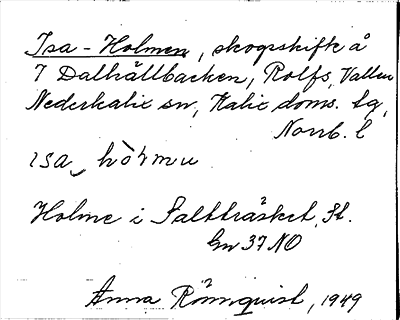 Isa-Holmen, skogsskifte å
7 Dalhällbacken, Rolfs, Vallen
Nederkalix sn, Kalix doms. tg,
Norrb. l
ɪsa hòlmɐ
Holme i Salttråsket, St.
Gn 37 NO
Anna Rönnquist, 1949